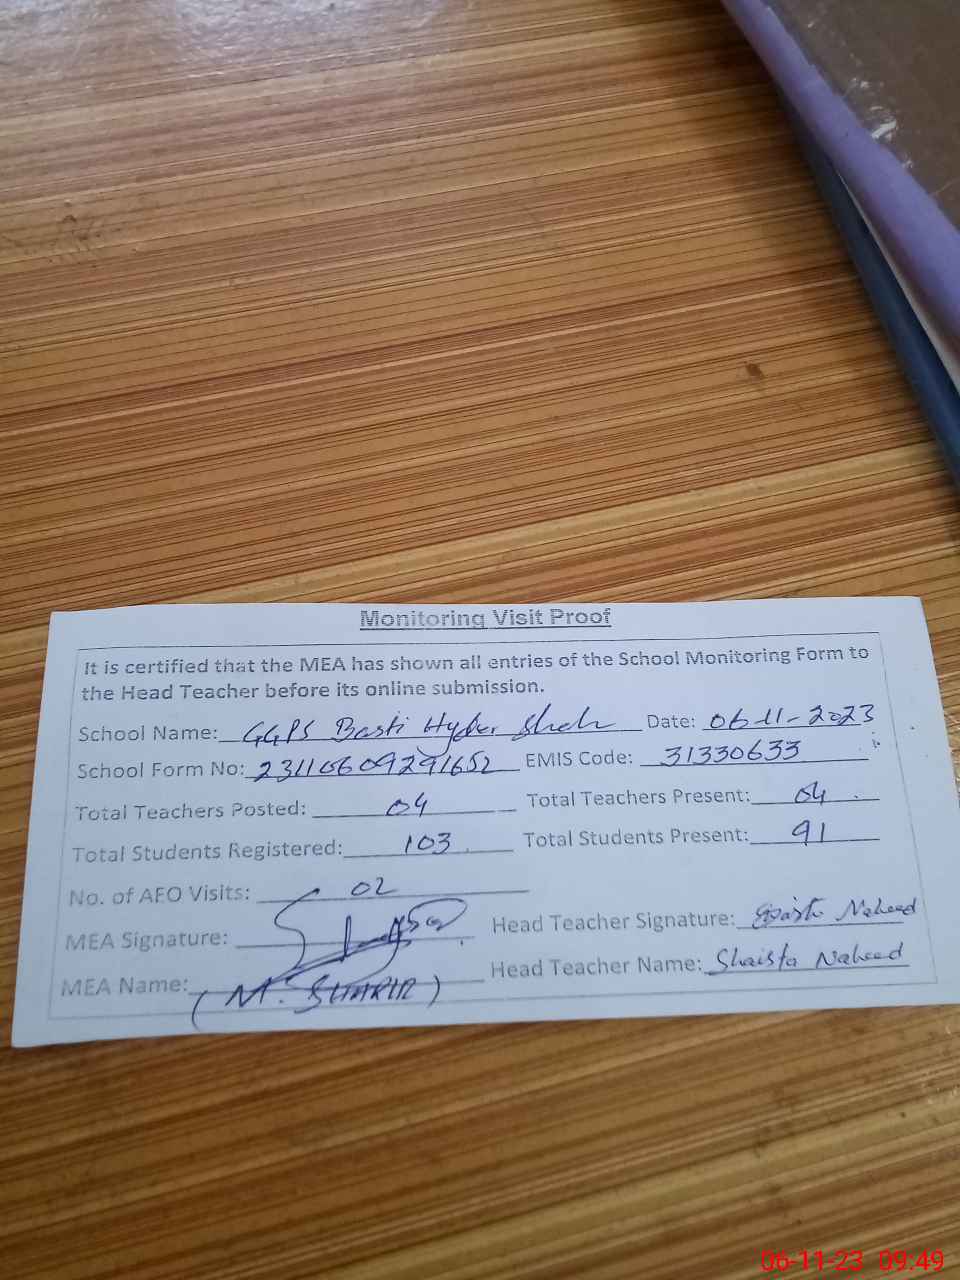 Monitoring Visit Proof
It is certified that the MEA has shown all entries of the School Monitoring Form to
the Head Teacher before its online submission.
School Name: GGPS Basti Hyder Shah Date: 06-11-2023
School Form No: 23110609291652 EMIS Code: 31330633
Total Teachers Posted: 04 Total Teachers Present: 04
Total Students Registered: 103 Total Students Present: 91
No. of AEO Visits: 02
MEA Signature: Head Teacher Signature: Shaista Naheed
MEA Name: (M. ) Head Teacher Name: Shaista Naheed
06-11-23 09:49